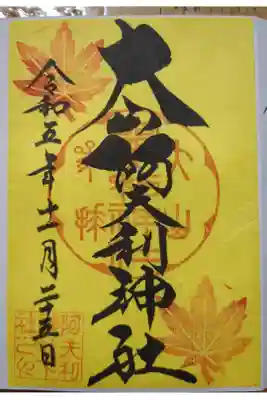 大山阿夫利神社
令和五年十一月二十五日
阿夫利